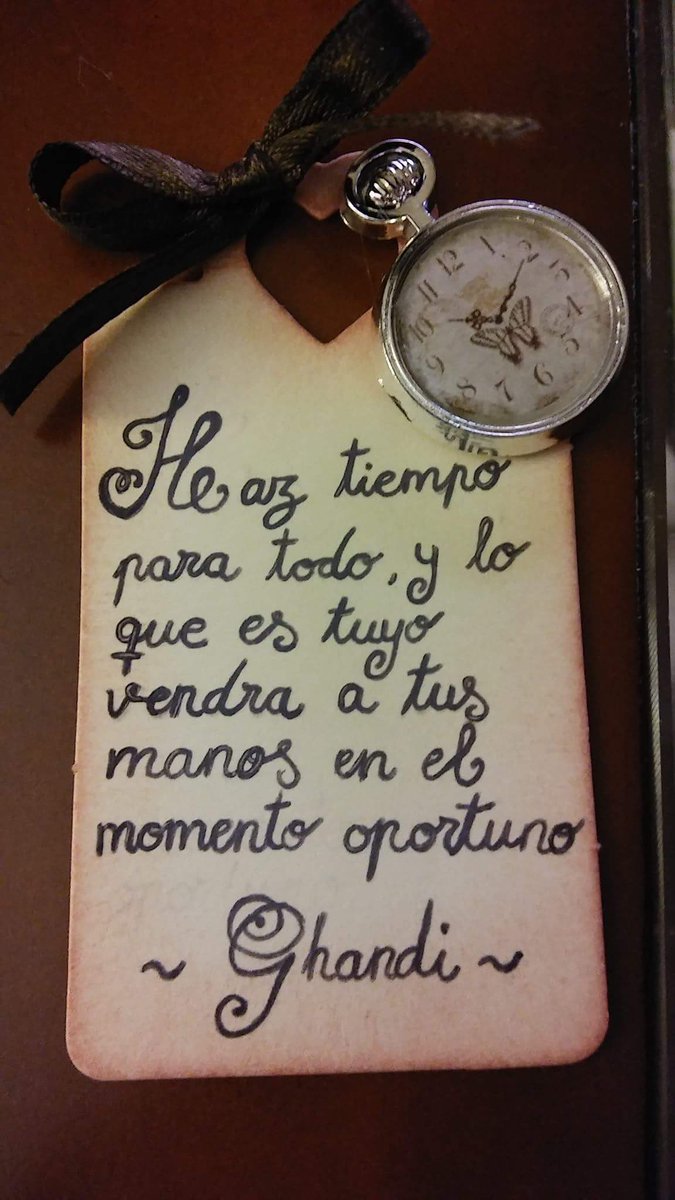 12 1 2 3
11 4
10 5
9 8 7 6
Haz tiempo
para todo, y lo
que es tuyo
vendra a tus
manos en el
momento oportuno
~ Ghandi ~